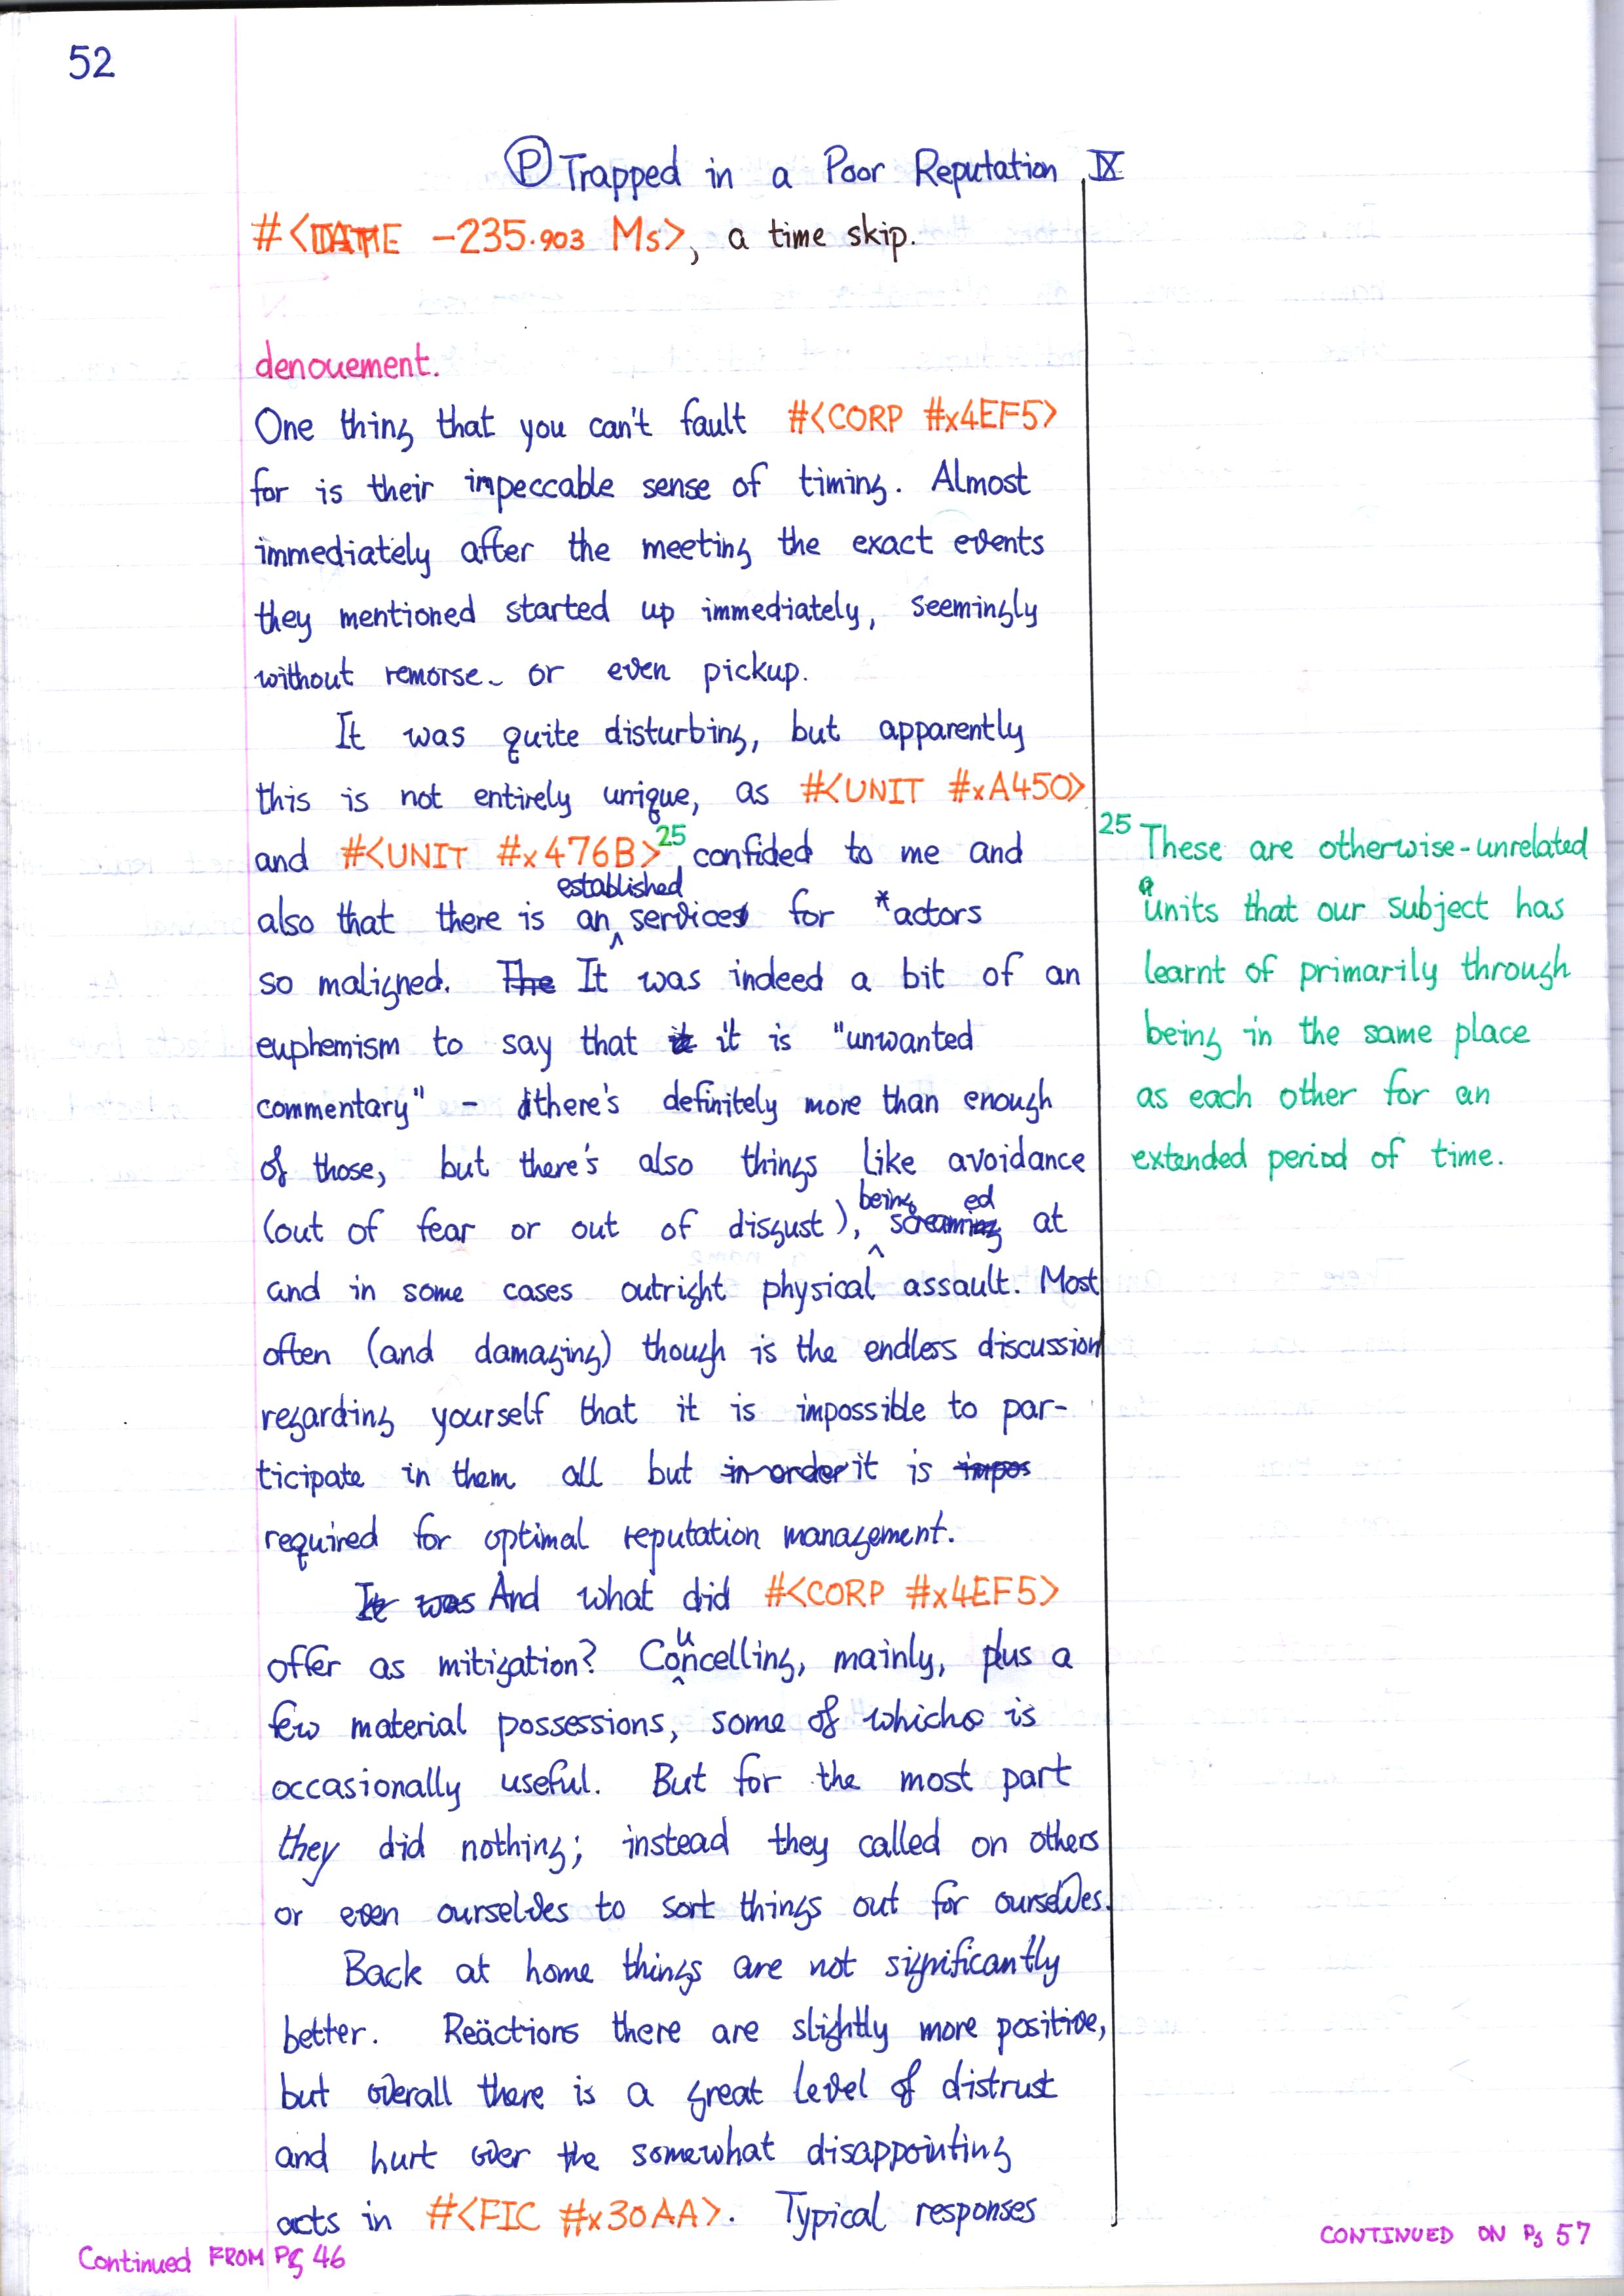 52
Ⓟ Trapped in a Poor Reputation IX
#<DATE -235.903 Ms>, a time skip.
denouement.
One thing that you can't fault #<CORP #x4EF5>
for is their impeccable sense of timing. Almost
immediately after the meeting the exact events
they mentioned started up immediately, seemingly
without remorse or even pickup.
It was quite disturbing, but apparently
this is not entirely unique, as #<UNIT #xA450>
and #<UNIT #x476B>25, confided to me and
also that there is an established services for *actors
so maligned. The It was indeed a bit of an
euphemism to say that it it is "unwanted
commentary" - there's definitely more than enough
of those, but there's also things like avoidance
(out of fear or out of disgust), being screamed at
and in some cases outright physical assault. Most
often (and damaging) though is the endless discussion
regarding yourself that it is impossible to par-
ticipate in them all but in order it is impos
required for optimal reputation management.
It was And what did #<CORP #x4EF5>
offer as mitigation? Councelling, mainly, plus a
few material possessions, some of which is
occasionally useful. But for the most part
they did nothing; instead they called on others
or even ourselves to sort things out for ourselves.
Back at home things are not significantly
better. Reäctions there are slightly more positive,
but overall there is a great level of distrust
and hurt over the somewhat disappointing
acts in #<FIC #x30AA>. Typical responses
25 These are otherwise-unrelated
units that our subject has
learnt of primarily through
being in the same place
as each other for an
extended period of time.
Continued FROM Pg 46
CONTINUED ON Pg 57